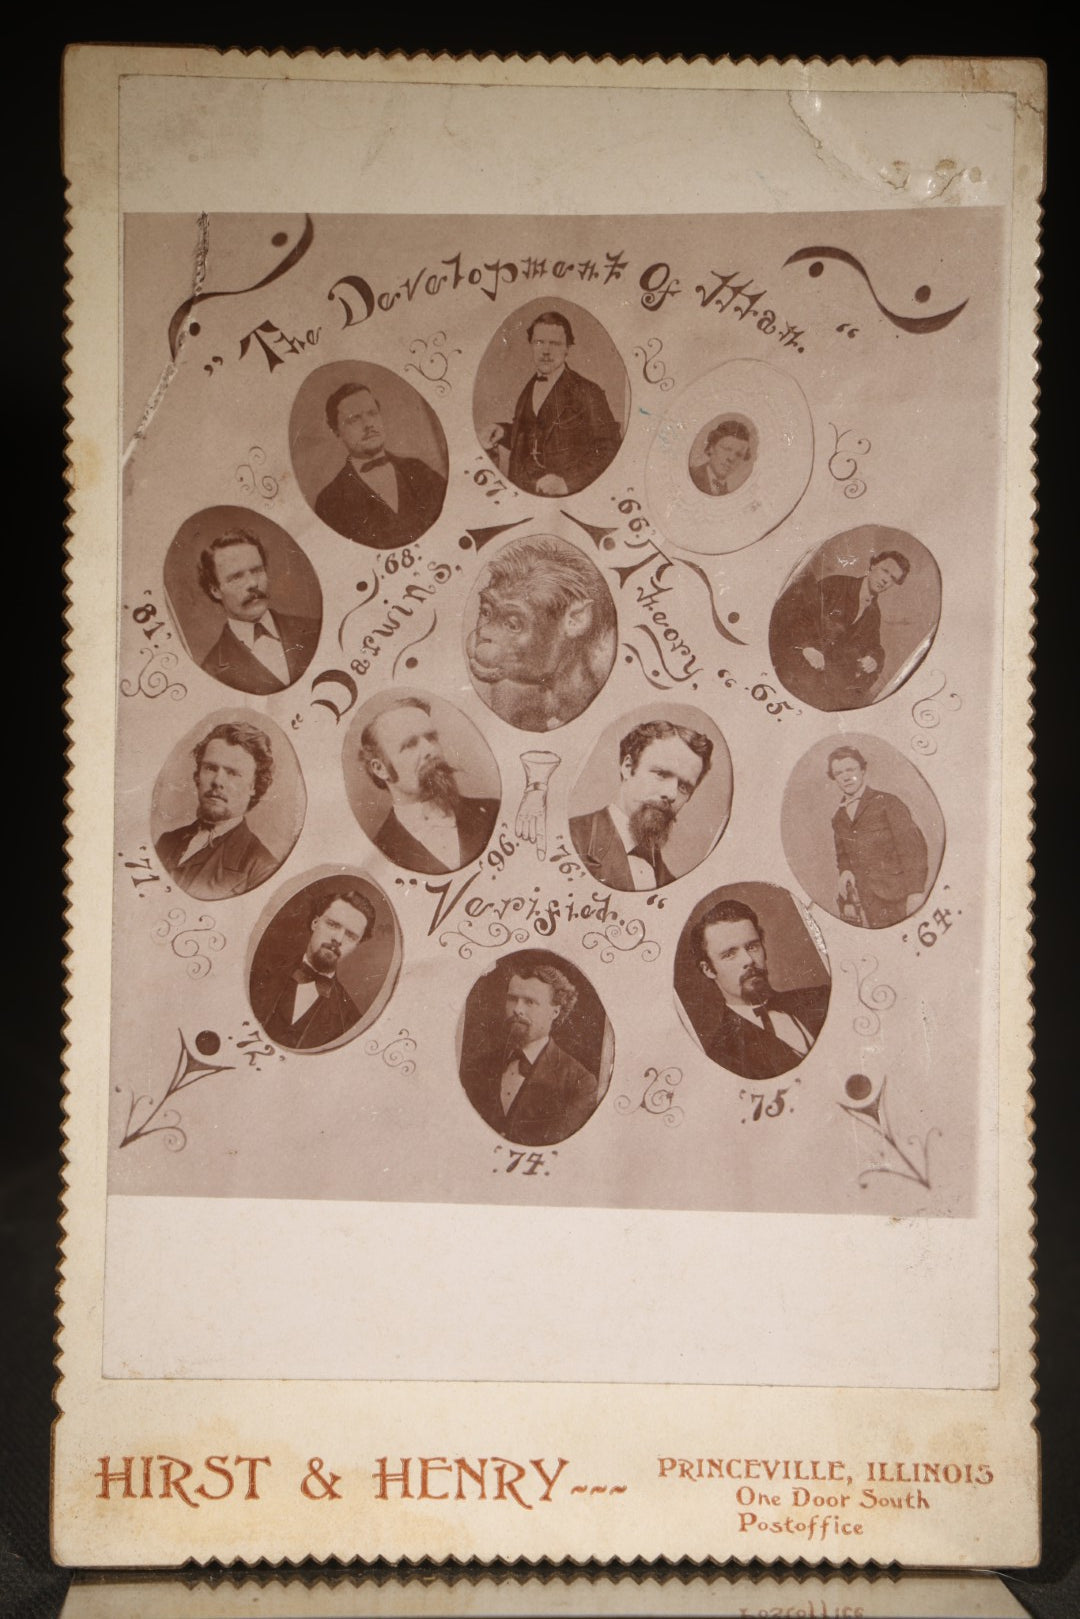 „The Development Of Man.“
'67.'
'66.'
'68.'
"Darwin's.
Theory. “
'81.'
'65.'
'71.'
'96.'
'76.'
"Verified.“
'64.'
'72.'
'75.'
'74.'
HIRST & HENRY~~~
PRINCEVILLE, ILLINOIS
One Door South
Postoffice